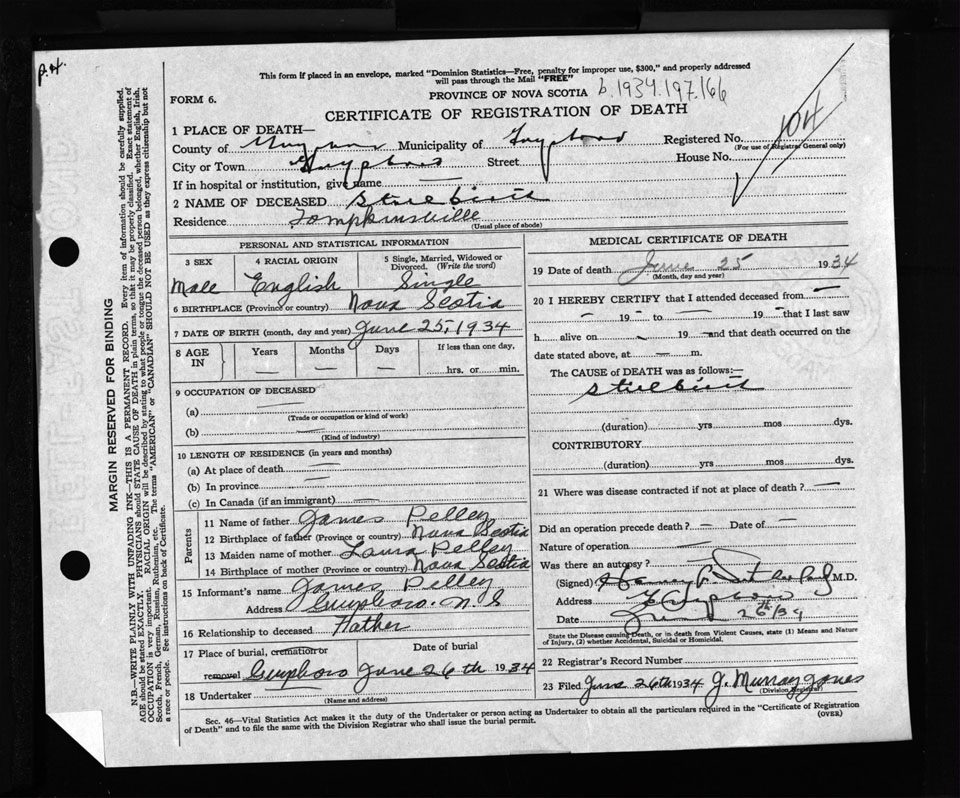 P.H.
This form if placed in an envelope, marked "Dominion Statistics—Free, penalty for improper use, $300," and properly addressed
will pass through the Mail "FREE"
PROVINCE OF NOVA SCOTIA b.1934.197.166
FORM 6.
CERTIFICATE OF REGISTRATION OF DEATH
104
1 PLACE OF DEATH—
County of Municipality of Registered No.
(For use of Registrar General only)
City or Town Street House No.
If in hospital or institution, give name —
2 NAME OF DECEASED Stillbirth
Residence Tompkinsville
(Usual place of abode)
PERSONAL AND STATISTICAL INFORMATION
3 SEX 4 RACIAL ORIGIN 5 Single, Married, Widowed or Divorced. (Write the word)
Male English Single
6 BIRTHPLACE (Province or country) Nova Scotia
7 DATE OF BIRTH (month, day and year) June 25, 1934
8 AGE IN Years Months Days If less than one day,
— — — hrs. or min.
9 OCCUPATION OF DECEASED
(a) —
(Trade or occupation or kind of work)
(b) —
(Kind of industry)
10 LENGTH OF RESIDENCE (in years and months)
(a) At place of death —
(b) In province —
(c) In Canada (if an immigrant) —
Parents
11 Name of father James Pelley
12 Birthplace of father (Province or country) Nova Scotia
13 Maiden name of mother Laura Pelley
14 Birthplace of mother (Province or country) Nova Scotia
15 Informant's name James Pelley
Address Guysboro. N.S
16 Relationship to deceased Father
17 Place of burial, cremation or Date of burial
removal Guysboro June 26th 1934
18 Undertaker —
(Name and address)
MEDICAL CERTIFICATE OF DEATH
19 Date of death June 25 1934
(Month, day and year)
20 I HEREBY CERTIFY that I attended deceased from —
— 19 — to — 19 — that I last saw
h alive on — 19 — and that death occurred on the
date stated above, at — m.
The CAUSE of DEATH was as follows:—
Stillbirth
(duration) yrs mos dys.
CONTRIBUTORY
(duration) yrs mos dys.
21 Where was disease contracted if not at place of death? —
Did an operation precede death? — Date of —
Nature of operation —
Was there an autopsy? —
(Signed) M.D.
Address
Date June 26th/34
State the Disease causing Death, or in death from Violent Causes, state (1) Means and Nature
of Injury, (2) whether Accidental, Suicidal or Homicidal.
22 Registrar's Record Number
23 Filed June 26th 1934 J. Murray Jones
(Division Registrar)
Sec. 46—Vital Statistics Act makes it the duty of the Undertaker or person acting as Undertaker to obtain all the particulars required in the "Certificate of Registration
of Death" and to file the same with the Division Registrar who shall issue the burial permit.
(OVER)
MARGIN RESERVED FOR BINDING
N.B.—WRITE PLAINLY WITH UNFADING INK—THIS IS A PERMANENT RECORD. Every item of information should be carefully supplied.
AGE should be stated EXACTLY. PHYSICIANS should STATE CAUSE OF DEATH in plain terms, so that it may be properly classified. Exact statement of
OCCUPATION is very important. RACIAL ORIGIN will be described by stating to what people or tongue the deceased person belonged, whether English, Irish,
Scotch, French, German, Russian, Ruthenian, etc. The terms "AMERICAN" or "CANADIAN" SHOULD NOT BE USED as they express citizenship but not
a race or people. See instructions on back of Certificate.